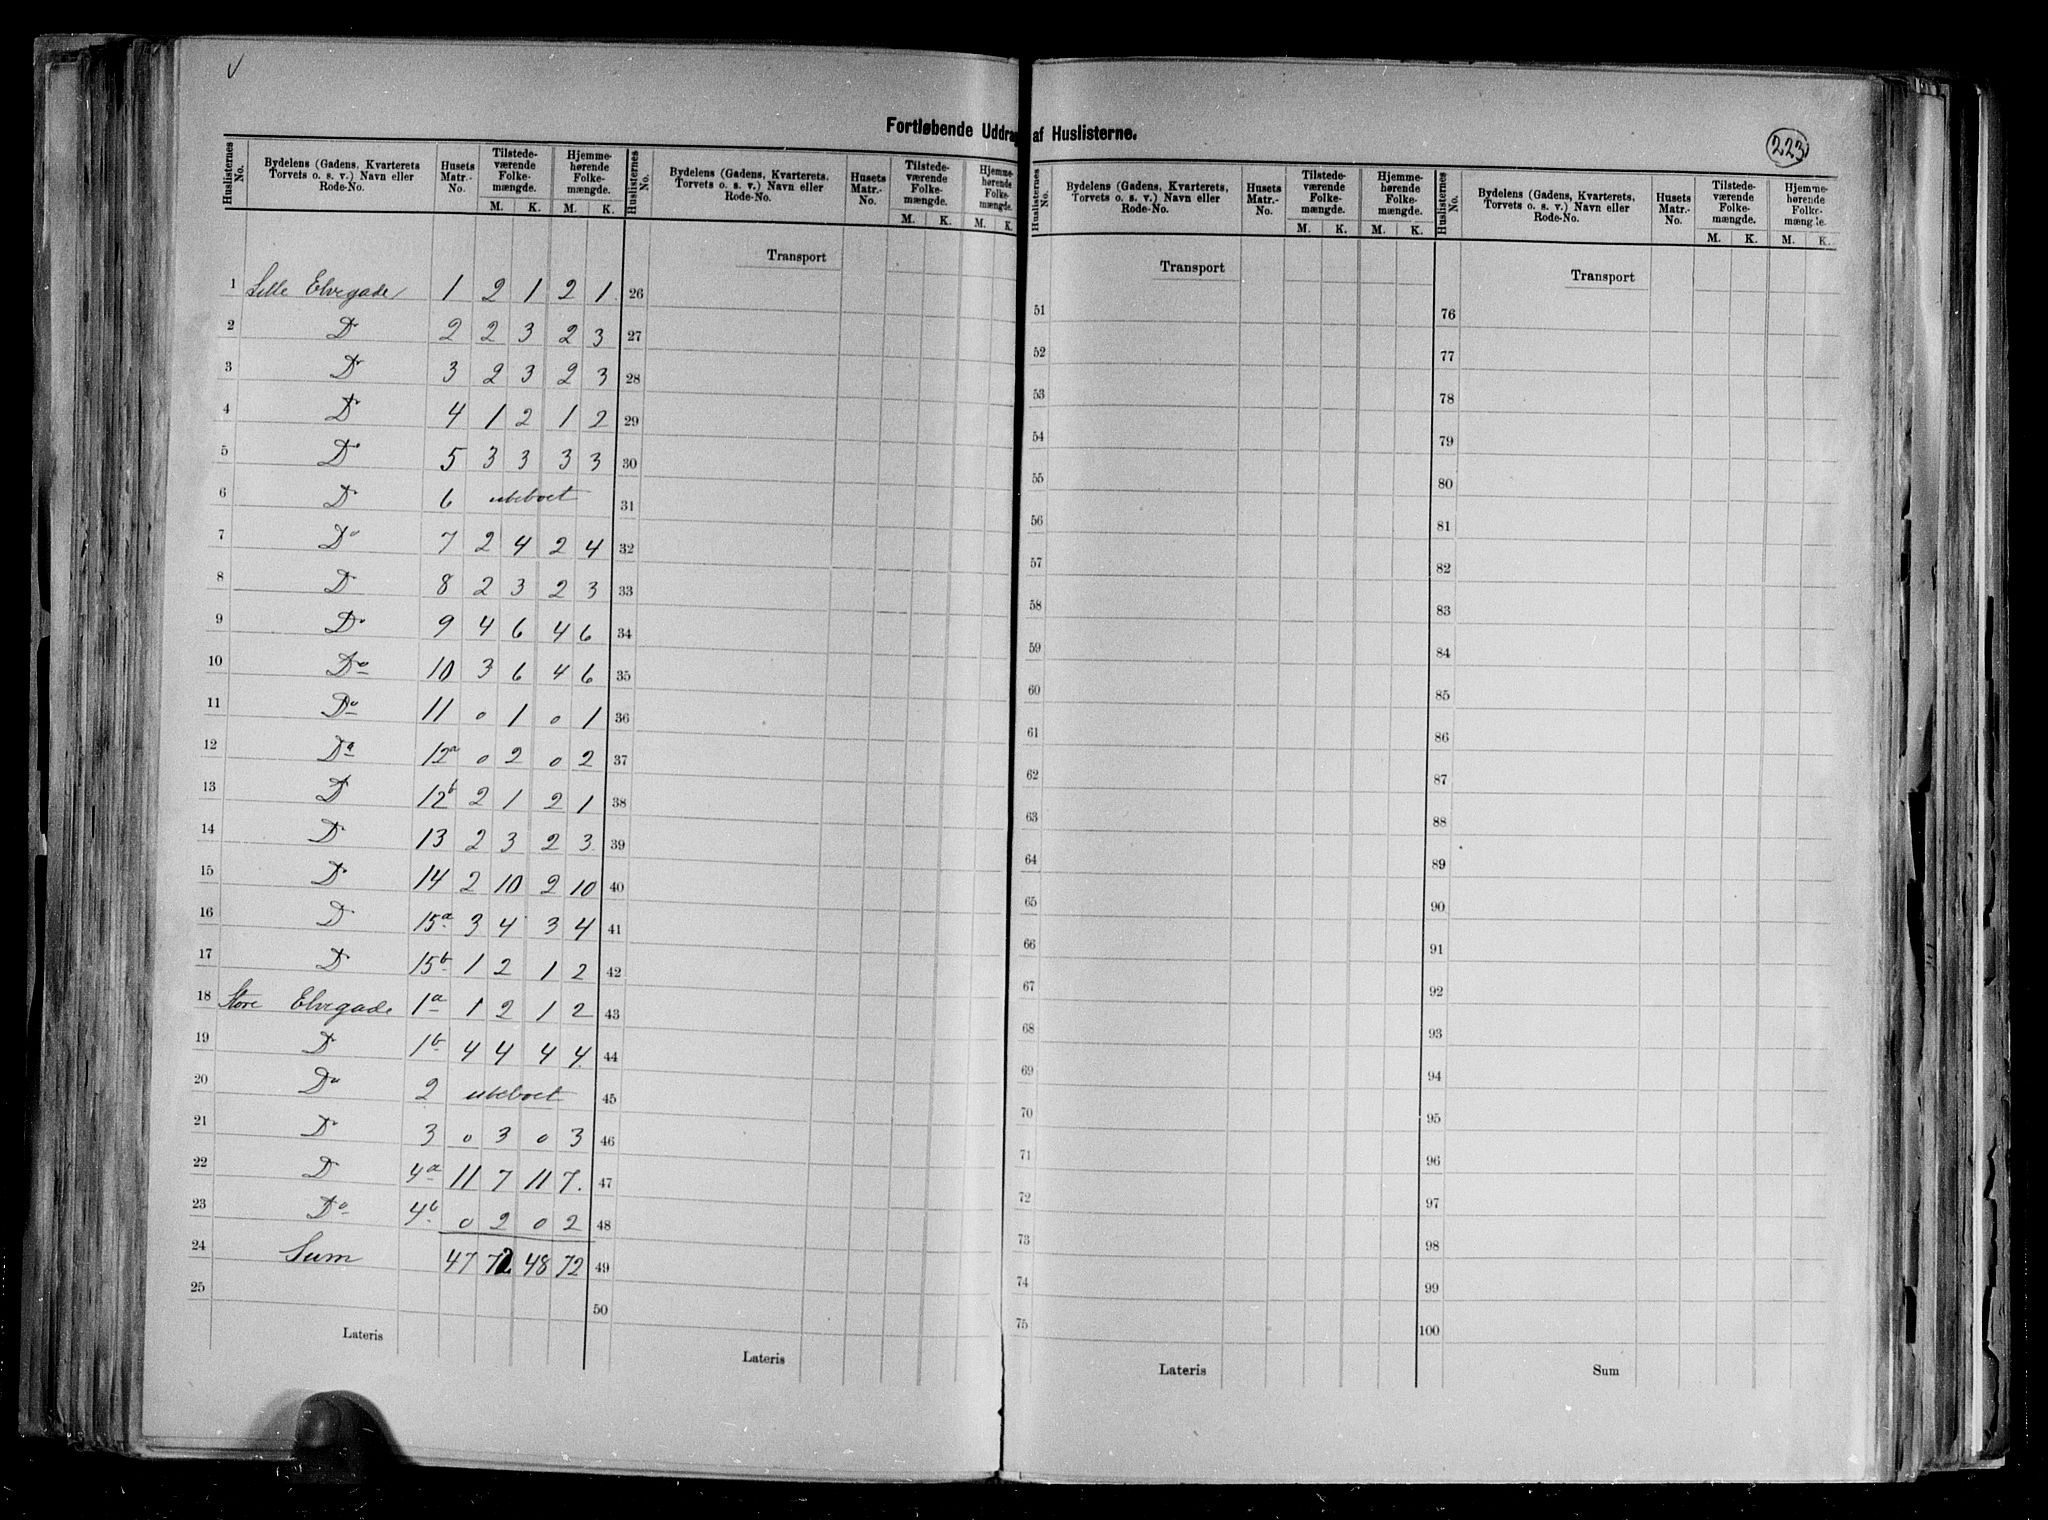 √
Fortløbende Uddrag af Huslisterne.
223
Huslisternes No. | Bydelens (Gadens, Kvarterets Torvets o. s. v.) Navn eller Rode-No. | Husets Matr.-No. | Tilstede-værende Folke-mængde. M. K. | Hjemme-hørende Folke-mængde. M. K.
1 Lille Elvegade 1 2 1 2 1
2 Do 2 2 3 2 3
3 Do 3 2 3 2 3
4 Do 4 1 2 1 2
5 Do 5 3 3 3 3
6 Do 6 ubeboet
7 Do 7 2 4 2 4
8 Do 8 2 3 2 3
9 Do 9 4 6 4 6
10 Do 10 3 6 4 6
11 Do 11 0 1 0 1
12 Do 12a 0 2 0 2
13 Do 12b 2 1 2 1
14 Do 13 2 3 2 3
15 Do 14 2 10 2 10
16 Do 15a 3 4 3 4
17 Do 15b 1 2 1 2
18 Store Elvegade 1a 1 2 1 2
19 Do 1b 4 4 4 4
20 Do 2 ubeboet
21 Do 3 0 3 0 3
22 Do 4a 11 7 11 7.
23 Do 4b 0 2 0 2
24 Sum 47 72 48 72
25
Lateris
Huslisternes No. | Bydelens (Gadens, Kvarterets, Torvets o. s. v.) Navn eller Rode-No. | Husets Matr.-No. | Tilstede-værende Folke-mængde. M. K. | Hjemme-hørende Folke-mængde. M. K.
Transport
26
27
28
29
30
31
32
33
34
35
36
37
38
39
40
41
42
43
44
45
46
47
48
49
50
Lateris
Huslisternes No. | Bydelens (Gadens, Kvarterets, Torvets o. s. v.) Navn eller Rode-No. | Husets Matr.-No. | Tilstede-værende Folke-mængde. M. K. | Hjemme-hørende Folke-mængde. M. K.
Transport
51
52
53
54
55
56
57
58
59
60
61
62
63
64
65
66
67
68
69
70
71
72
73
74
75
Lateris
Huslisternes No. | Bydelens (Gadens, Kvarterets, Torvets o. s. v.) Navn eller Rode-No. | Husets Matr.-No. | Tilstede-værende Folke-mængde. M. K. | Hjemme-hørende Folke-mængde. M. K.
Transport
76
77
78
79
80
81
82
83
84
85
86
87
88
89
90
91
92
93
94
95
96
97
98
99
100
Sum